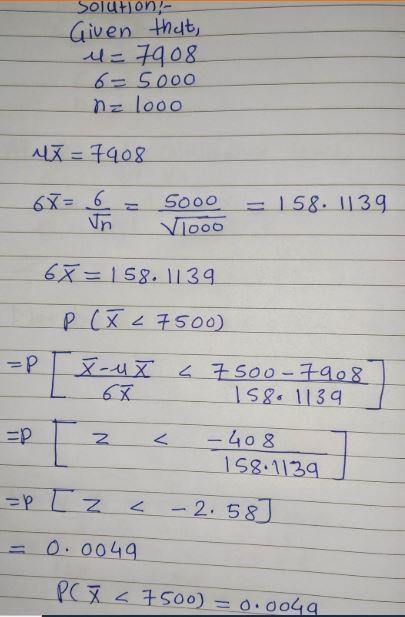 Solution:-
Given that,
μ = 7908
σ = 5000
n = 1000
μx̄ = 7908
σx̄ = σ/√n = 5000/√1000 = 158.1139
σx̄ = 158.1139
P (x̄ < 7500)
=P [ x̄-μx̄/σx̄ < 7500-7908/158.1139 ]
=P [ z < -408/158.1139 ]
=P [ z < -2.58]
= 0.0049
P(x̄ < 7500) = 0.0049